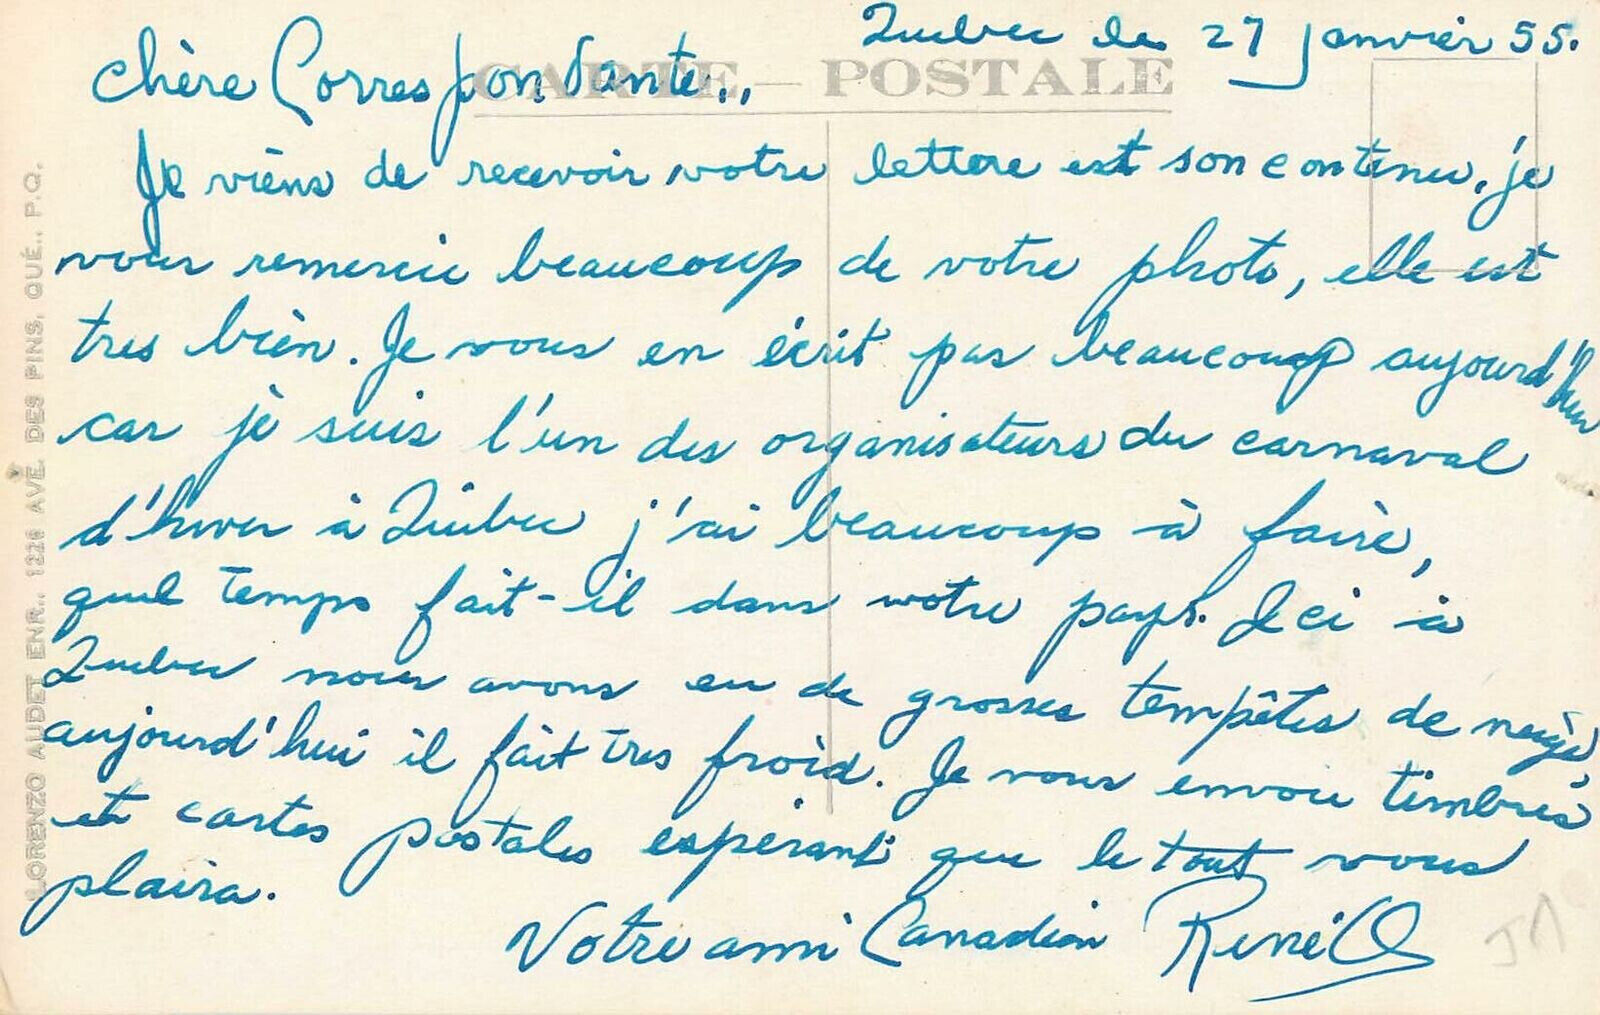 Québec le 27 janvier 55.
CARTE — POSTALE
chère Correspondante..
Je viens de recevoir votre lettere est son contenu, je
vous remercie beaucoup de votre photo, elle est
tres bien. Je vous en écrit pas beaucoup aujourd'hui
car je suis l'un des organisateurs du carnaval
d'hiver à Québec j'ai beaucoup à faire,
quel temps fait-il dans votre pays. Ici à
Québec nous avons eu de grosses tempêtes de neige,
aujourd'hui il fait tres froid. Je vous envoie timbres
et cartes postales espérant que le tout vous
plaira.
Votre ami Canadien René
LORENZO AUDET ENR., 1226 AVE. DES PINS, QUÉ., P.Q.